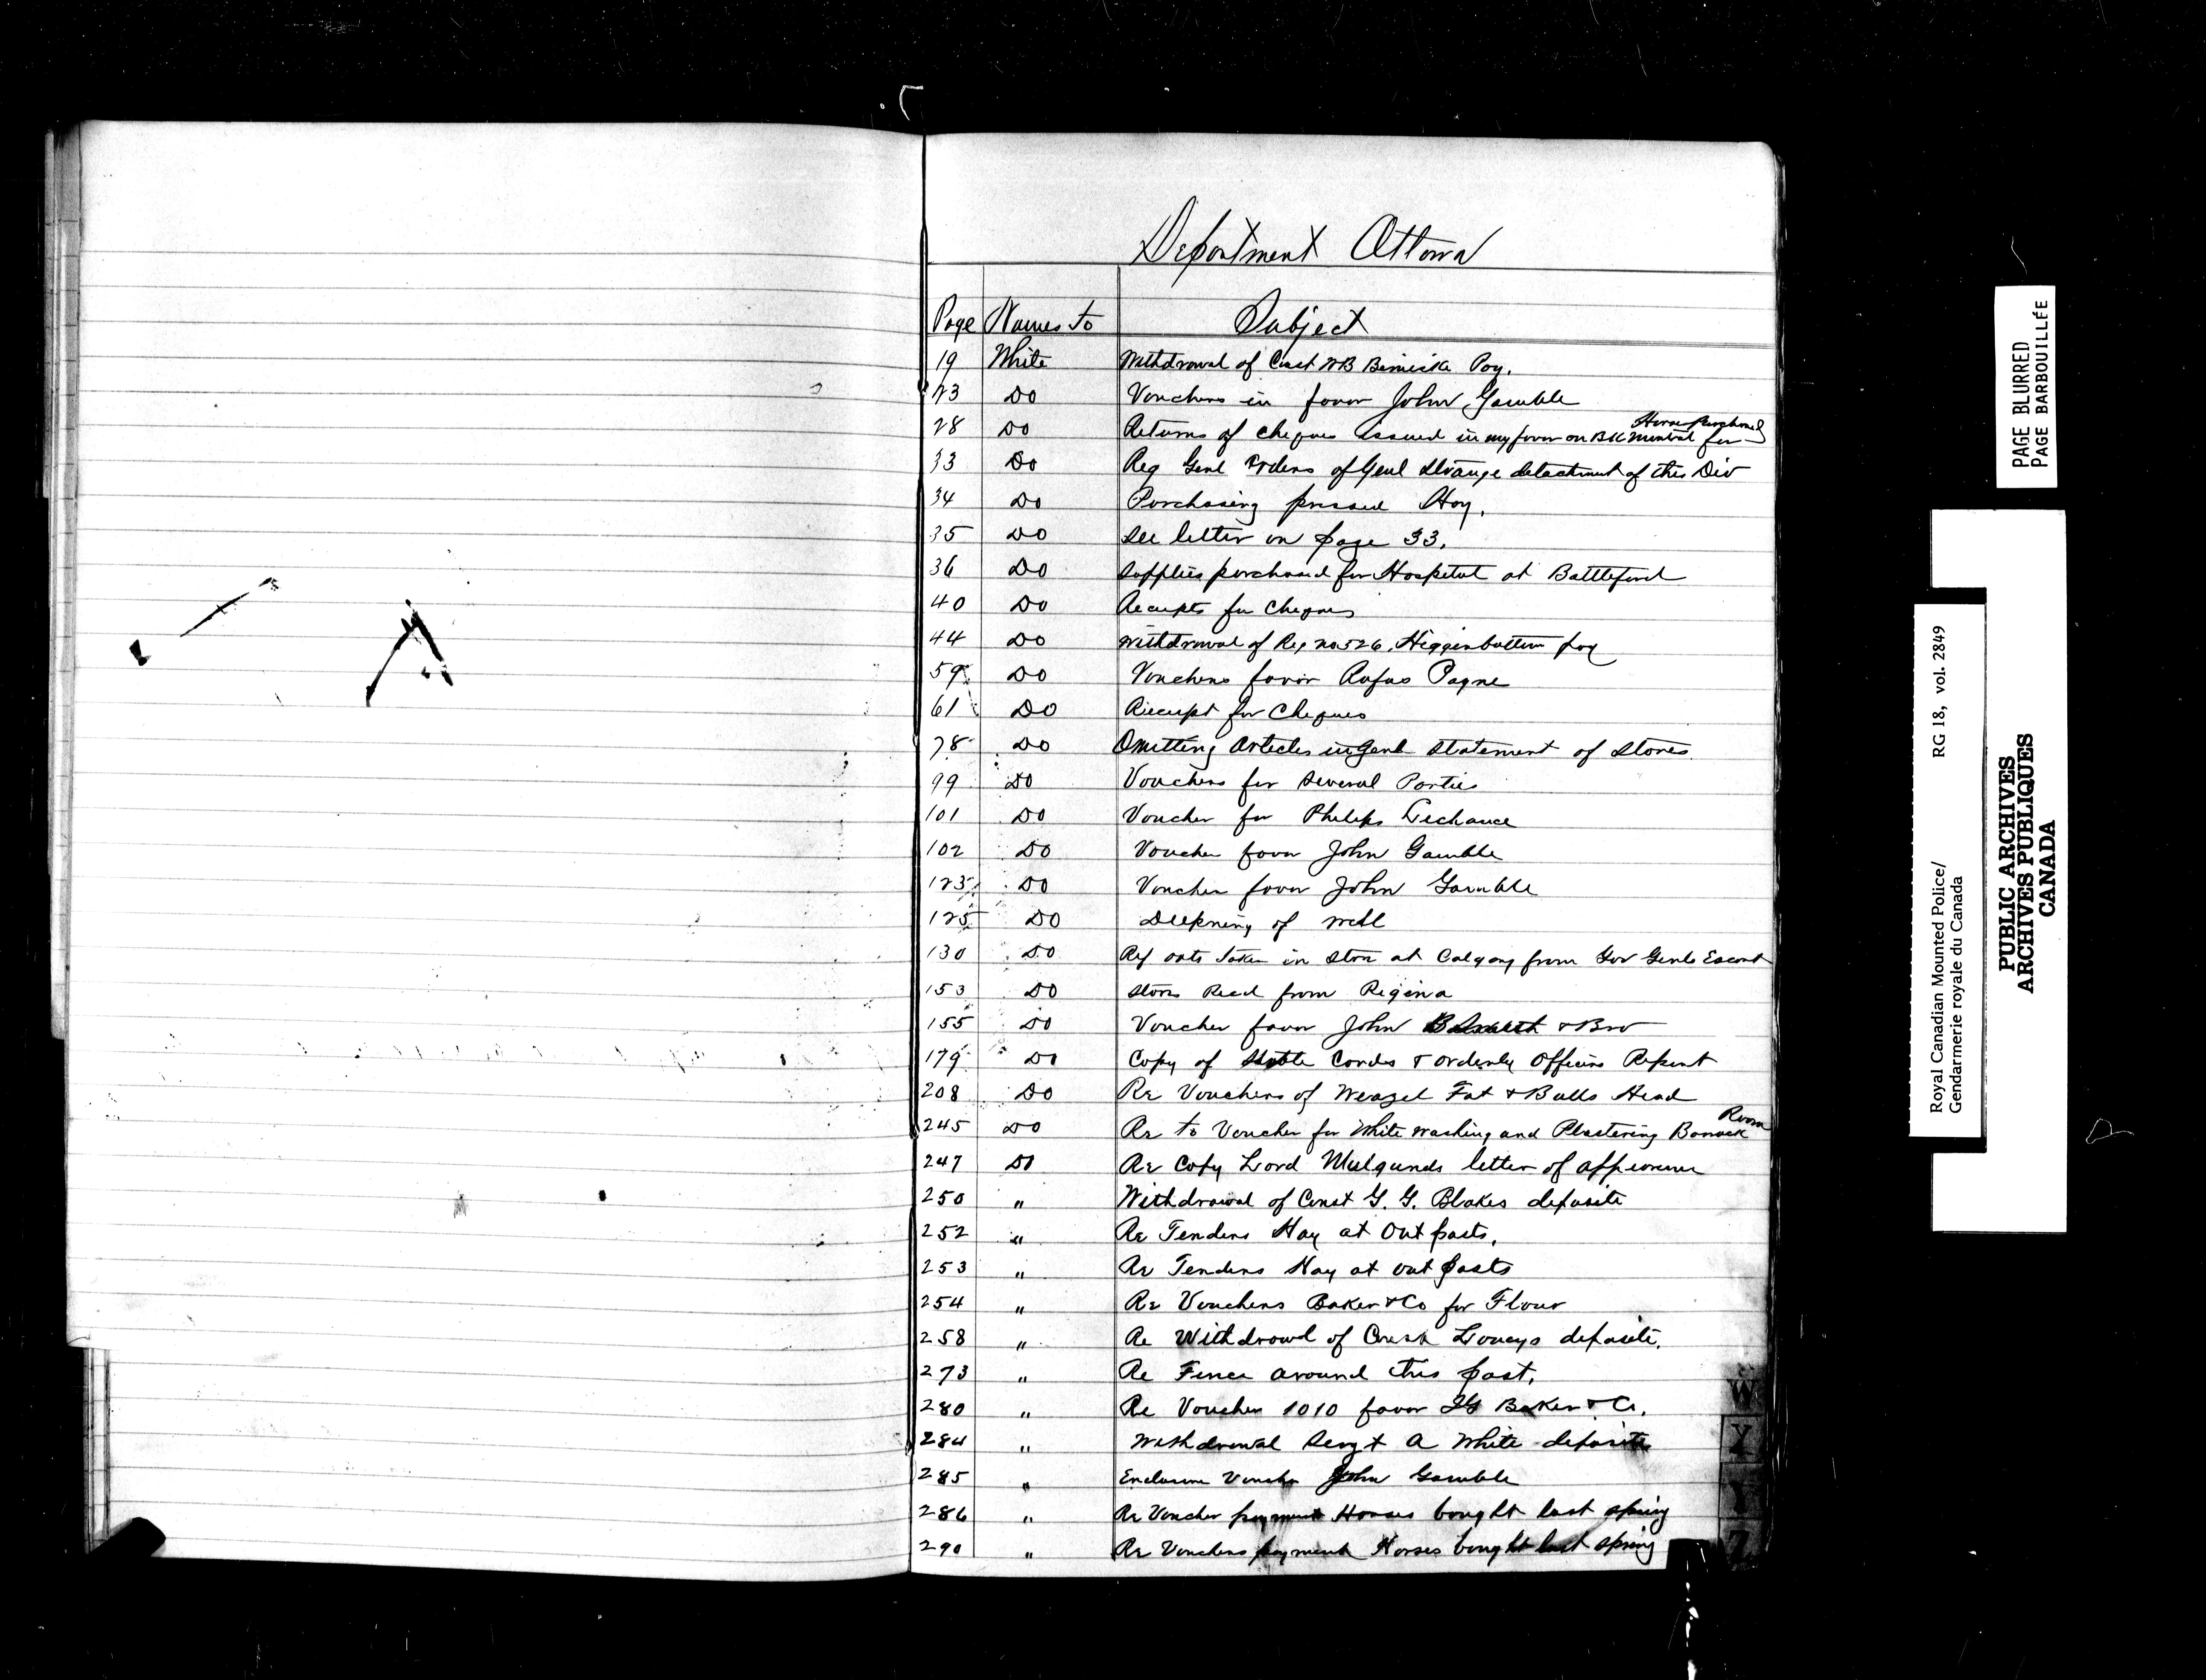 Department Ottawa
Page Names to Subject
19 White Withdrawal of Const WB Pay.
23 Do Vouchers in favor John Gamble
Horse purchased
28 Do Returns of cheques issued in my favor on BK Montreal for
33 Do Reg Genl Orders of Genl Strange detachment of this Div
34 Do Purchasing pressed Hay.
35 Do See letter on page 33.
36 Do Supplies purchased for Hospital at Battleford
40 Do Receipts for Cheques
44 Do Withdrawal of Reg no 526, Higginbottom pay
59 Do Vouchers favor Rufus Payne
61 Do Receipt for Cheques
78 Do Omitting Articles in Genl Statement of Stores.
99 Do Vouchers for Several Parties
101 Do Voucher for Philips Lechance
102 Do Voucher favor John Gamble
123 Do Voucher favor John Gamble
125 Do Deepning of well
130 Do Ref oats taken in Store at Calgary from Gov Genls Escort
153 Do Stores Recd from Regina
155 Do Voucher favor John & Bro
179 Do Copy of Stable Cards & Orderly Officers Report
208 Do Re Vouchers of Weazel Fat & Bulls Head
Room
245 Do Re to Voucher for White washing and Plastering Barrack
247 Do Re Copy Lord Melgunds letter of
250 " Withdrawal of Const G. G. Blakes deposite
252 " Re Tenders Hay at Out posts.
253 " Re Tenders Hay at out posts
254 " Re Vouchers Baker & Co for Flour
258 " Re Withdrawl of Const deposite.
273 " Re Fence around this post.
280 " Re Voucher 1010 favor IG Baker & Co.
284 " Withdrawal Sergt A White deposite
285 " Enclosure Voucher John Gamble
286 " Re Voucher payment Horses bought last spring
290 " Re Vouchers payment Horses bought last spring
W
X
Y
Z
PAGE BLURRED
PAGE BARBOUILLÉE
Royal Canadian Mounted Police/ RG 18, vol. 2849
Gendarmerie royale du Canada
PUBLIC ARCHIVES
ARCHIVES PUBLIQUES
CANADA